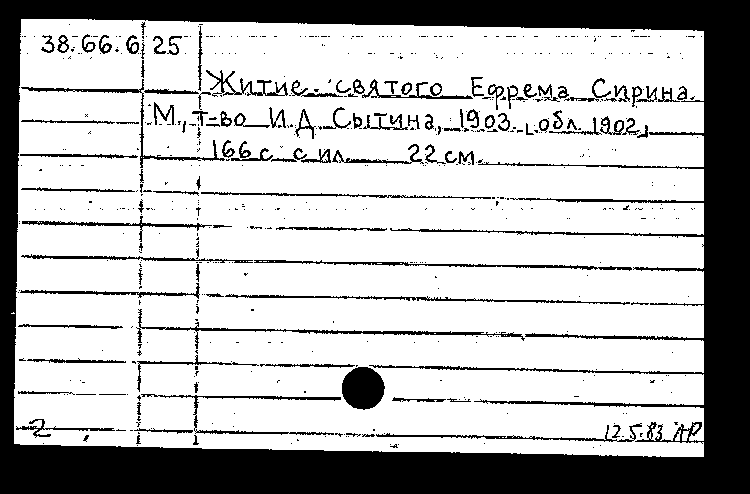 38.66.6 25
Житие святого Ефрема Сирина.
М., т-во И.Д. Сытина, 1903. [обл. 1902]
166 с. с ил. 22 см.
2
12.5.83 АР